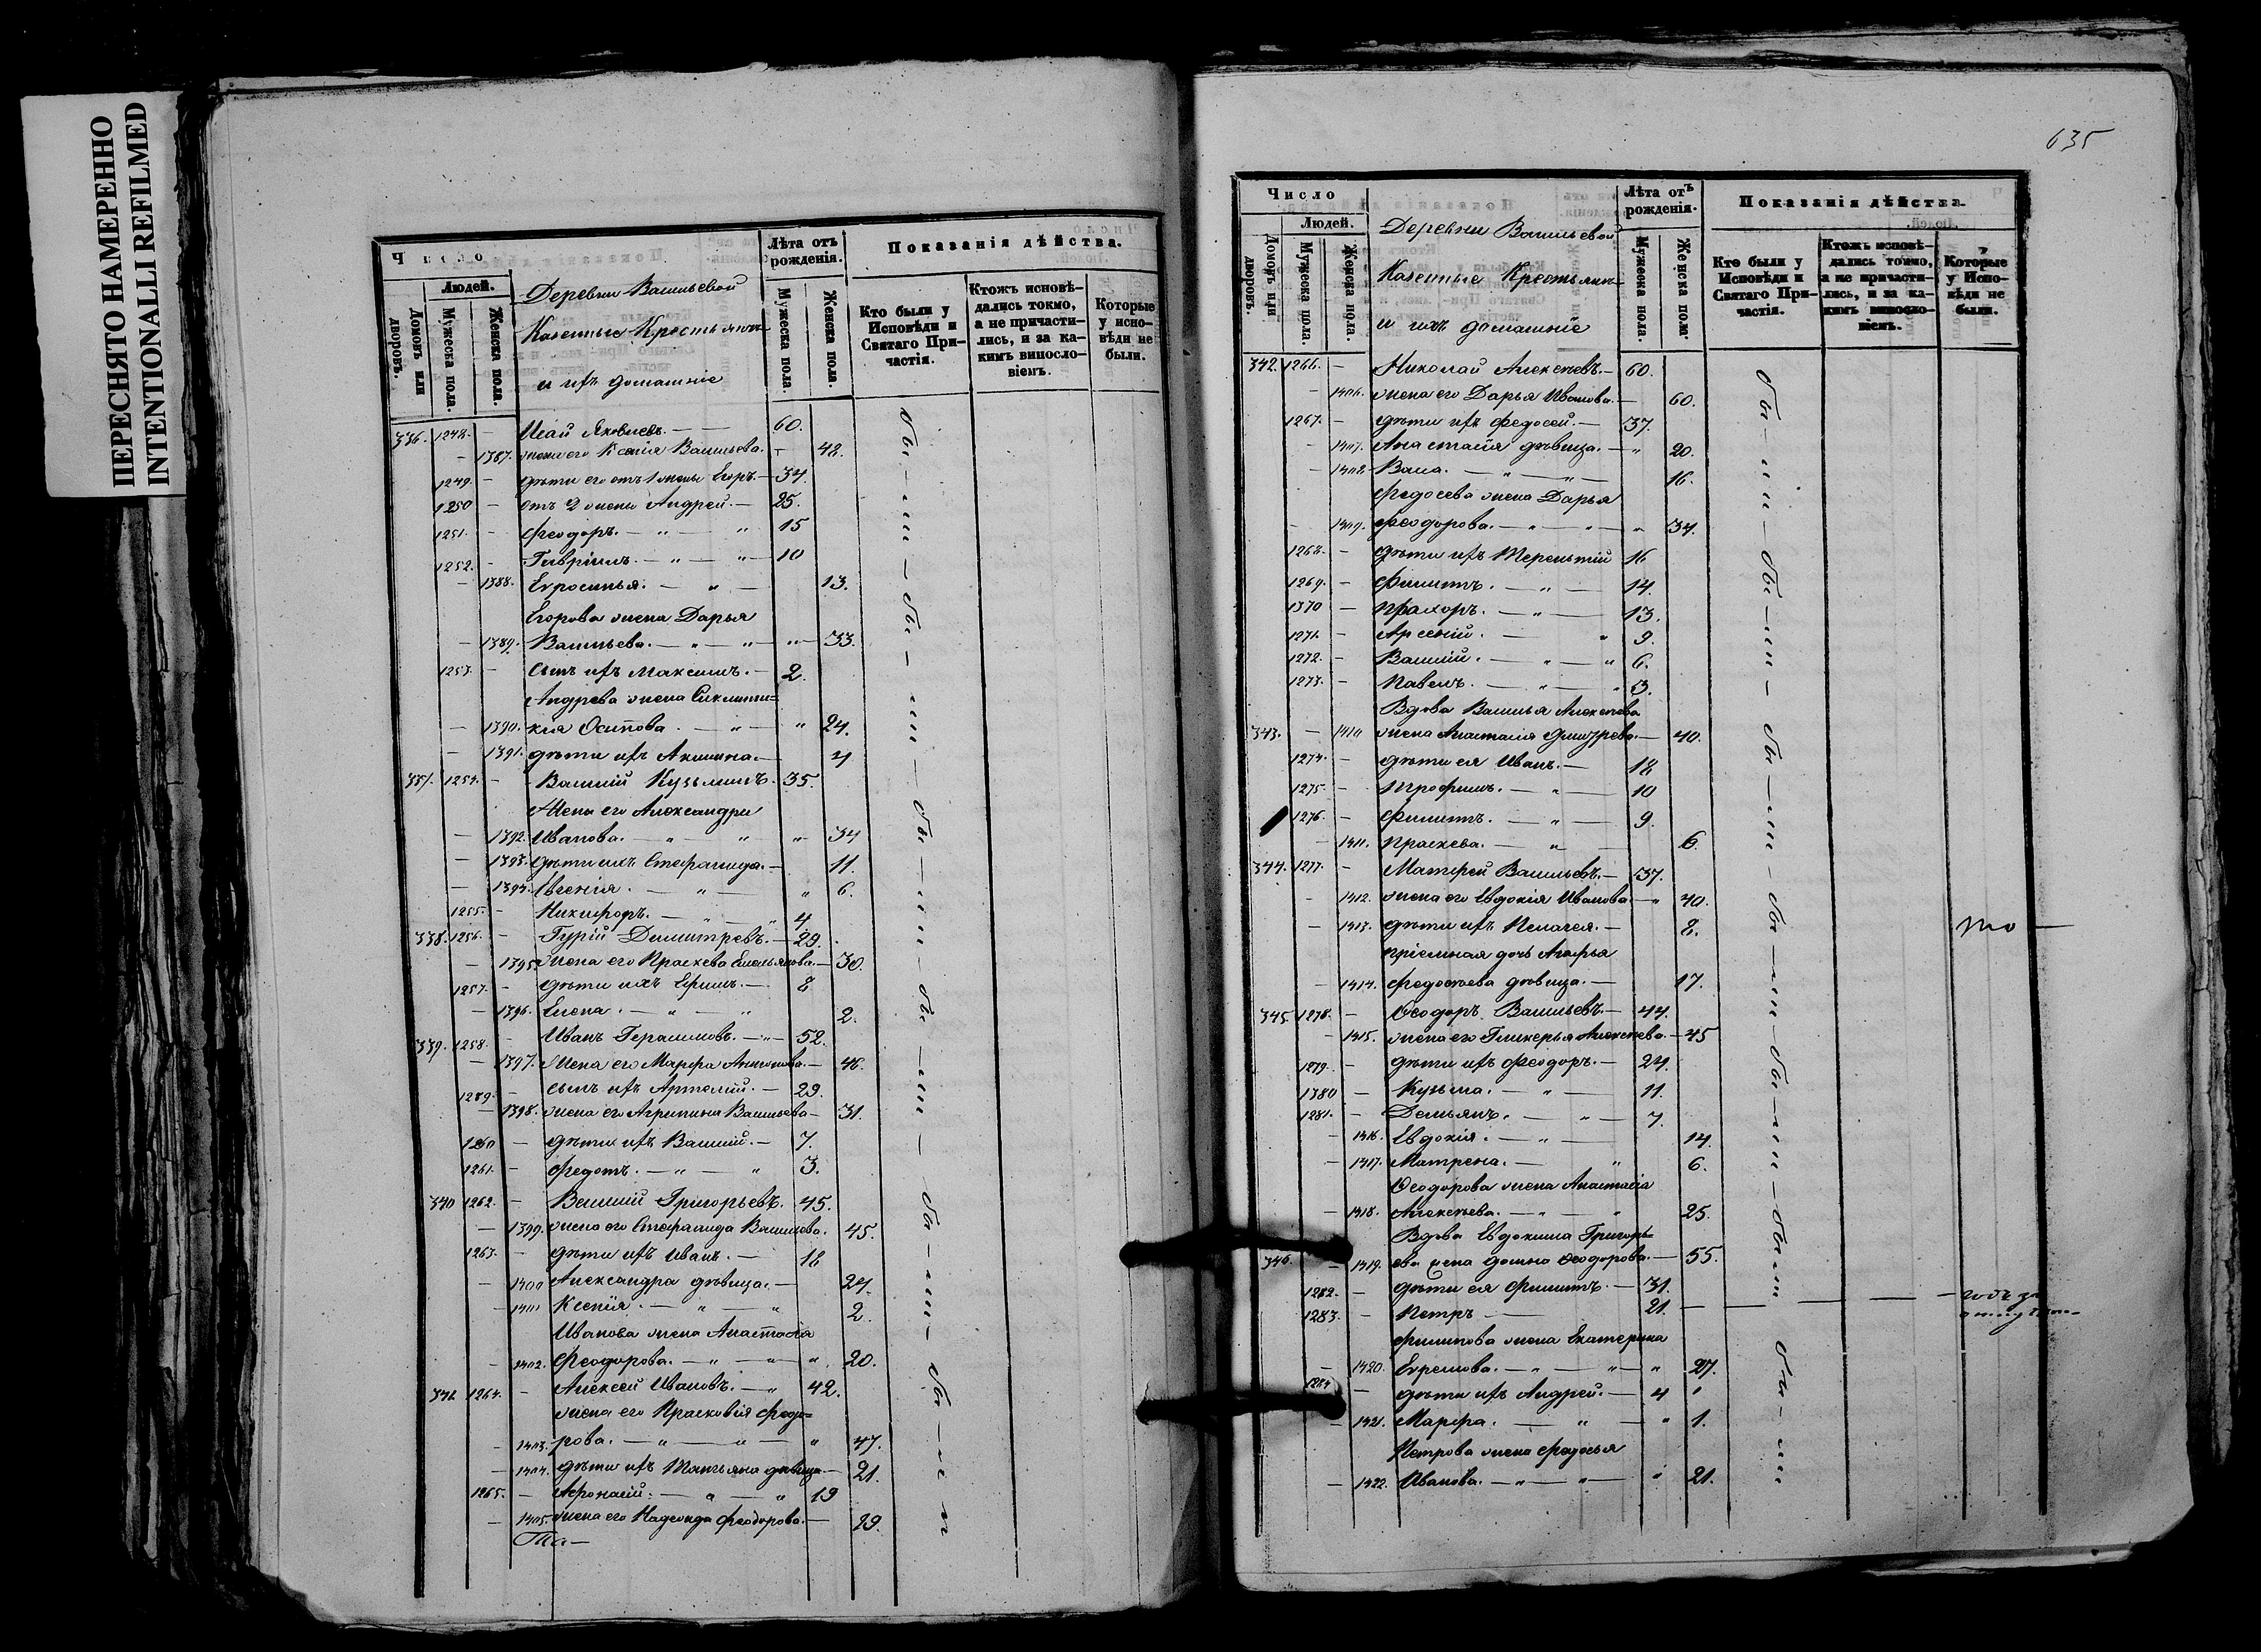 ПЕРЕСНЯТО НАМЕРЕННО
INTENTIONALLI REFILMED
Число
Людей.
Домовъ или дворовъ.
Мужеска пола.
Женска пола.
Деревни Васильевой
Казенные Крестьяне
и ихъ домашніе
Лѣта отъ рожденія.
Мужеска пола.
Женска пола.
Показанія дѣйства.
Кто были у Исповѣди и Святаго Причастія.
Ктожъ исповѣдались токмо, а не причастились, и за какимъ винословіемъ.
Которые у исповѣди не были.
336. 1248. – Исай Яковлевъ. – 60.
– 1387. жена его Ксенія Васильева. – 42.
1249. – дѣти его отъ 1 жены Егоръ. – 34.
1250 – отъ 2 жены Андрей. – 25.
1251. – Феодоръ. – " – " 15
1252. – Гавріилъ. – " – " – 10
– 1388. Евросинья. – " – 13.
Егорова жена Дарья
– 1389. Васильева. – " – " – " – 33.
1253. – сынъ ихъ Максимъ. – 2.
Андреева жена Синклити-
– 1390. кія Осипова. – " – " 24.
– 1391. дѣти ихъ Акилина. – 4
337. 1254. – Василій Кузьминъ. – 35.
Жена его Александра
– 1392. Иванова. – " " " 34
– 1393. дѣти ихъ Стефанида. – 11.
– 1394. Евгенія. – " – " 6.
1255. – Никифоръ. – " – " 4
338. 1256. – Гурій Димитревъ. – 29.
– 1395. жена его Праскева Емельянова. – 30.
1257. – дѣти ихъ Ефимъ. – 8
– 1396. Елена. – " – " 2.
339. 1258. – Иванъ Герасимовъ. – " – 52.
– 1397. Жена его Марфа Антонова. – 46.
1259. – сынъ ихъ Артемій. – 29.
– 1398. жена его Агрипина Васильева – 31.
1260 – дѣти ихъ Василій. – 7.
1261. – Федотъ. – " – " 3.
340 1262. – Василій Григорьевъ. 45.
– 1399. жена его Стефанида Васильева. 45.
1263. – дѣти ихъ Иванъ. – 18
– 1400 Александра дѣвица. – 24.
– 1401 Ксенія. – " – " 2.
Иванова жена Анастасія
– 1402. Феодорова. – " – " – " 20.
341. 1264. – Алексей Ивановъ. – " 42.
жена его Прасковія Федо-
– 1403. рова. – " – " – " 47.
– 1404. дѣти ихъ Татьяна дѣвица – 21.
1265. – Афонасій. – " – " 19
– 1405. жена его Надежда Феодорова. – 29.
бы – ли – бы – ли – бы – ли – бы – ли – бы – ли – бы – ли
635
Число
Людей.
Домовъ или дворовъ.
Мужеска пола.
Женска пола.
Деревни Васильевой
Казенные Крестьяне
и ихъ домашніе
Лѣта отъ рожденія.
Мужеска пола.
Женска пола.
Показанія дѣйства.
Кто были у Исповѣди и Святаго Причастія.
Ктожъ исповѣдались токмо, а не причастились, и за какимъ винословіемъ.
Которые у Исповѣди не были.
342. 1266. – Николай Алексѣевъ. – 60.
– 1406. жена его Дарья Иванова. – 60.
1267. – дѣти ихъ Федосей. – 37.
– 1407. Анастасія дѣвица. – " 20.
– 1408 Васа. – " – " – 16.
Федосеева жена Дарья
– 1409. Феодорова. – " – " – " 34.
1268. – дѣти ихъ Терентій 16
1269. – Филиппъ. – " – 14.
1370 – Прахоръ. – " – 13.
1271. – Арсеній. – " 9.
1272. – Василій. – " – " 6.
1273. – Павелъ. – " – " 3.
Вдова Василья Алексѣева
343. – 1410 жена Анастасія Дмитрева. – 40.
1274. – дѣти ея Иванъ. – 18
1275. – Трофимъ. – " – 10
1276. – Филиппъ. – " – 9.
– 1411. Праскева. – " – 6.
344. 1277. – Матфей Васильевъ. – 37.
– 1412. жена его Евдокія Иванова – " 40.
– 1413. дѣти ихъ Пелагея. – 8.
пріемная дочь Агафья
– 1414. Федотьева дѣвица. – 17.
345. 1278. – Феодоръ Васильевъ. – 44.
– 1415. жена его Гликерья Алексѣева. – 45
1279. – дѣти ихъ Феодоръ. – 24.
1380 – Кузьма. – " – 11.
1281. – Демьянъ. – " – 7.
– 1416. Евдокія. – " – 14.
– 1417. Матрена. – " 6.
Феодорова жена Анастасія
– 1418. Алексѣева. – " – " 25.
Вдова Евдокима Григорь-
346. – 1419. ева жена Домна Феодорова. – 55.
1282. – дѣти ея Филиппъ. – 31.
1283. – Петръ – 21.
Филипова жена Екатерина
– 1420. Ефремова. – " – " – " 27.
1284 – дѣти ихъ Андрей. – 4 "
– 1421. Марфа. – " – " 1.
Петрова жена Федосья
– 1422. Иванова. – " – " – " 21.
бы – ли – бы – ли – бы – ли – бы – ли – бы – ли – были
бы – ли